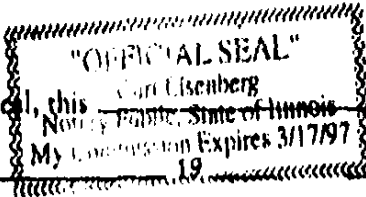 "OFFICIAL SEAL"
Eisenberg
seal, this
Notary Public, State of Illinois
My Commission Expires 3/17/97
19